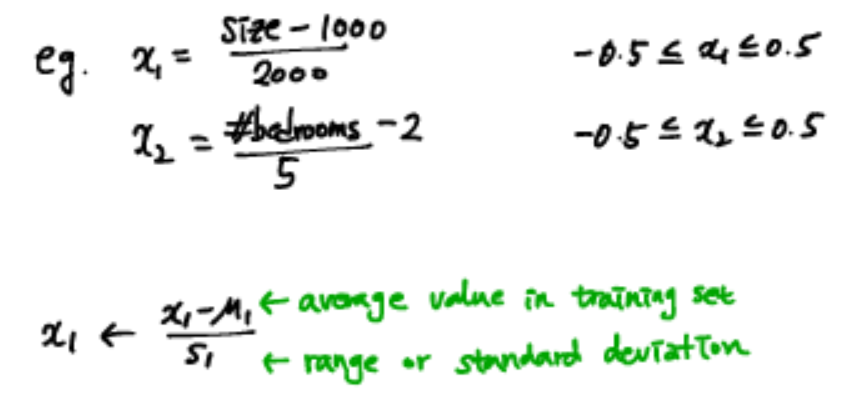 eg. x₁ = (size - 1000) / 2000    -0.5 ≤ x₁ ≤ 0.5
x₂ = (#bedrooms - 2) / 5    -0.5 ≤ x₂ ≤ 0.5
x₁ ← (x₁ - μ₁) / s₁
← average value in training set
← range or standard deviation